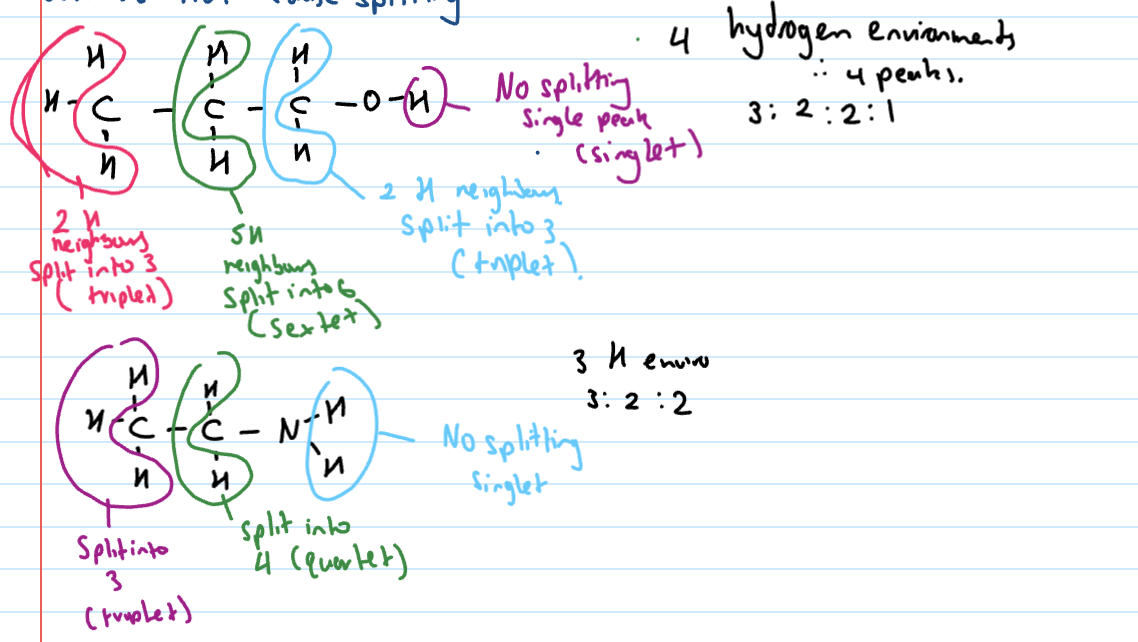 not cause splitting
4 hydrogen environments
∴ 4 peaks.
3 : 2 : 2 : 1
H H H
H - C - C - C - O - H
H H H
No splitting
single peak
(singlet)
2 H neighbours
split into 3
(triplet).
2 H
neighbours
split into 3
(triplet)
5H
neighbours
split into 6
(sextet)
3 H enviro
3 : 2 : 2
H H H
H - C - C - N
H H H
No splitting
singlet
split into
4 (quartet)
Split into
3
(triplet)